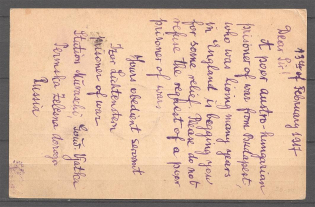 13th of February 1917
Dear Sir!
A poor austro-hungarian
prisoner of war from Budapest
who was living many years
in England is begging you
for some relief. Please do not
refuse the request of a poor
prisoner of war,
Yours obedient servant
prisoner of war
Station Murashi, Gouv. Vjatka
Permska želesna doroga
Russia